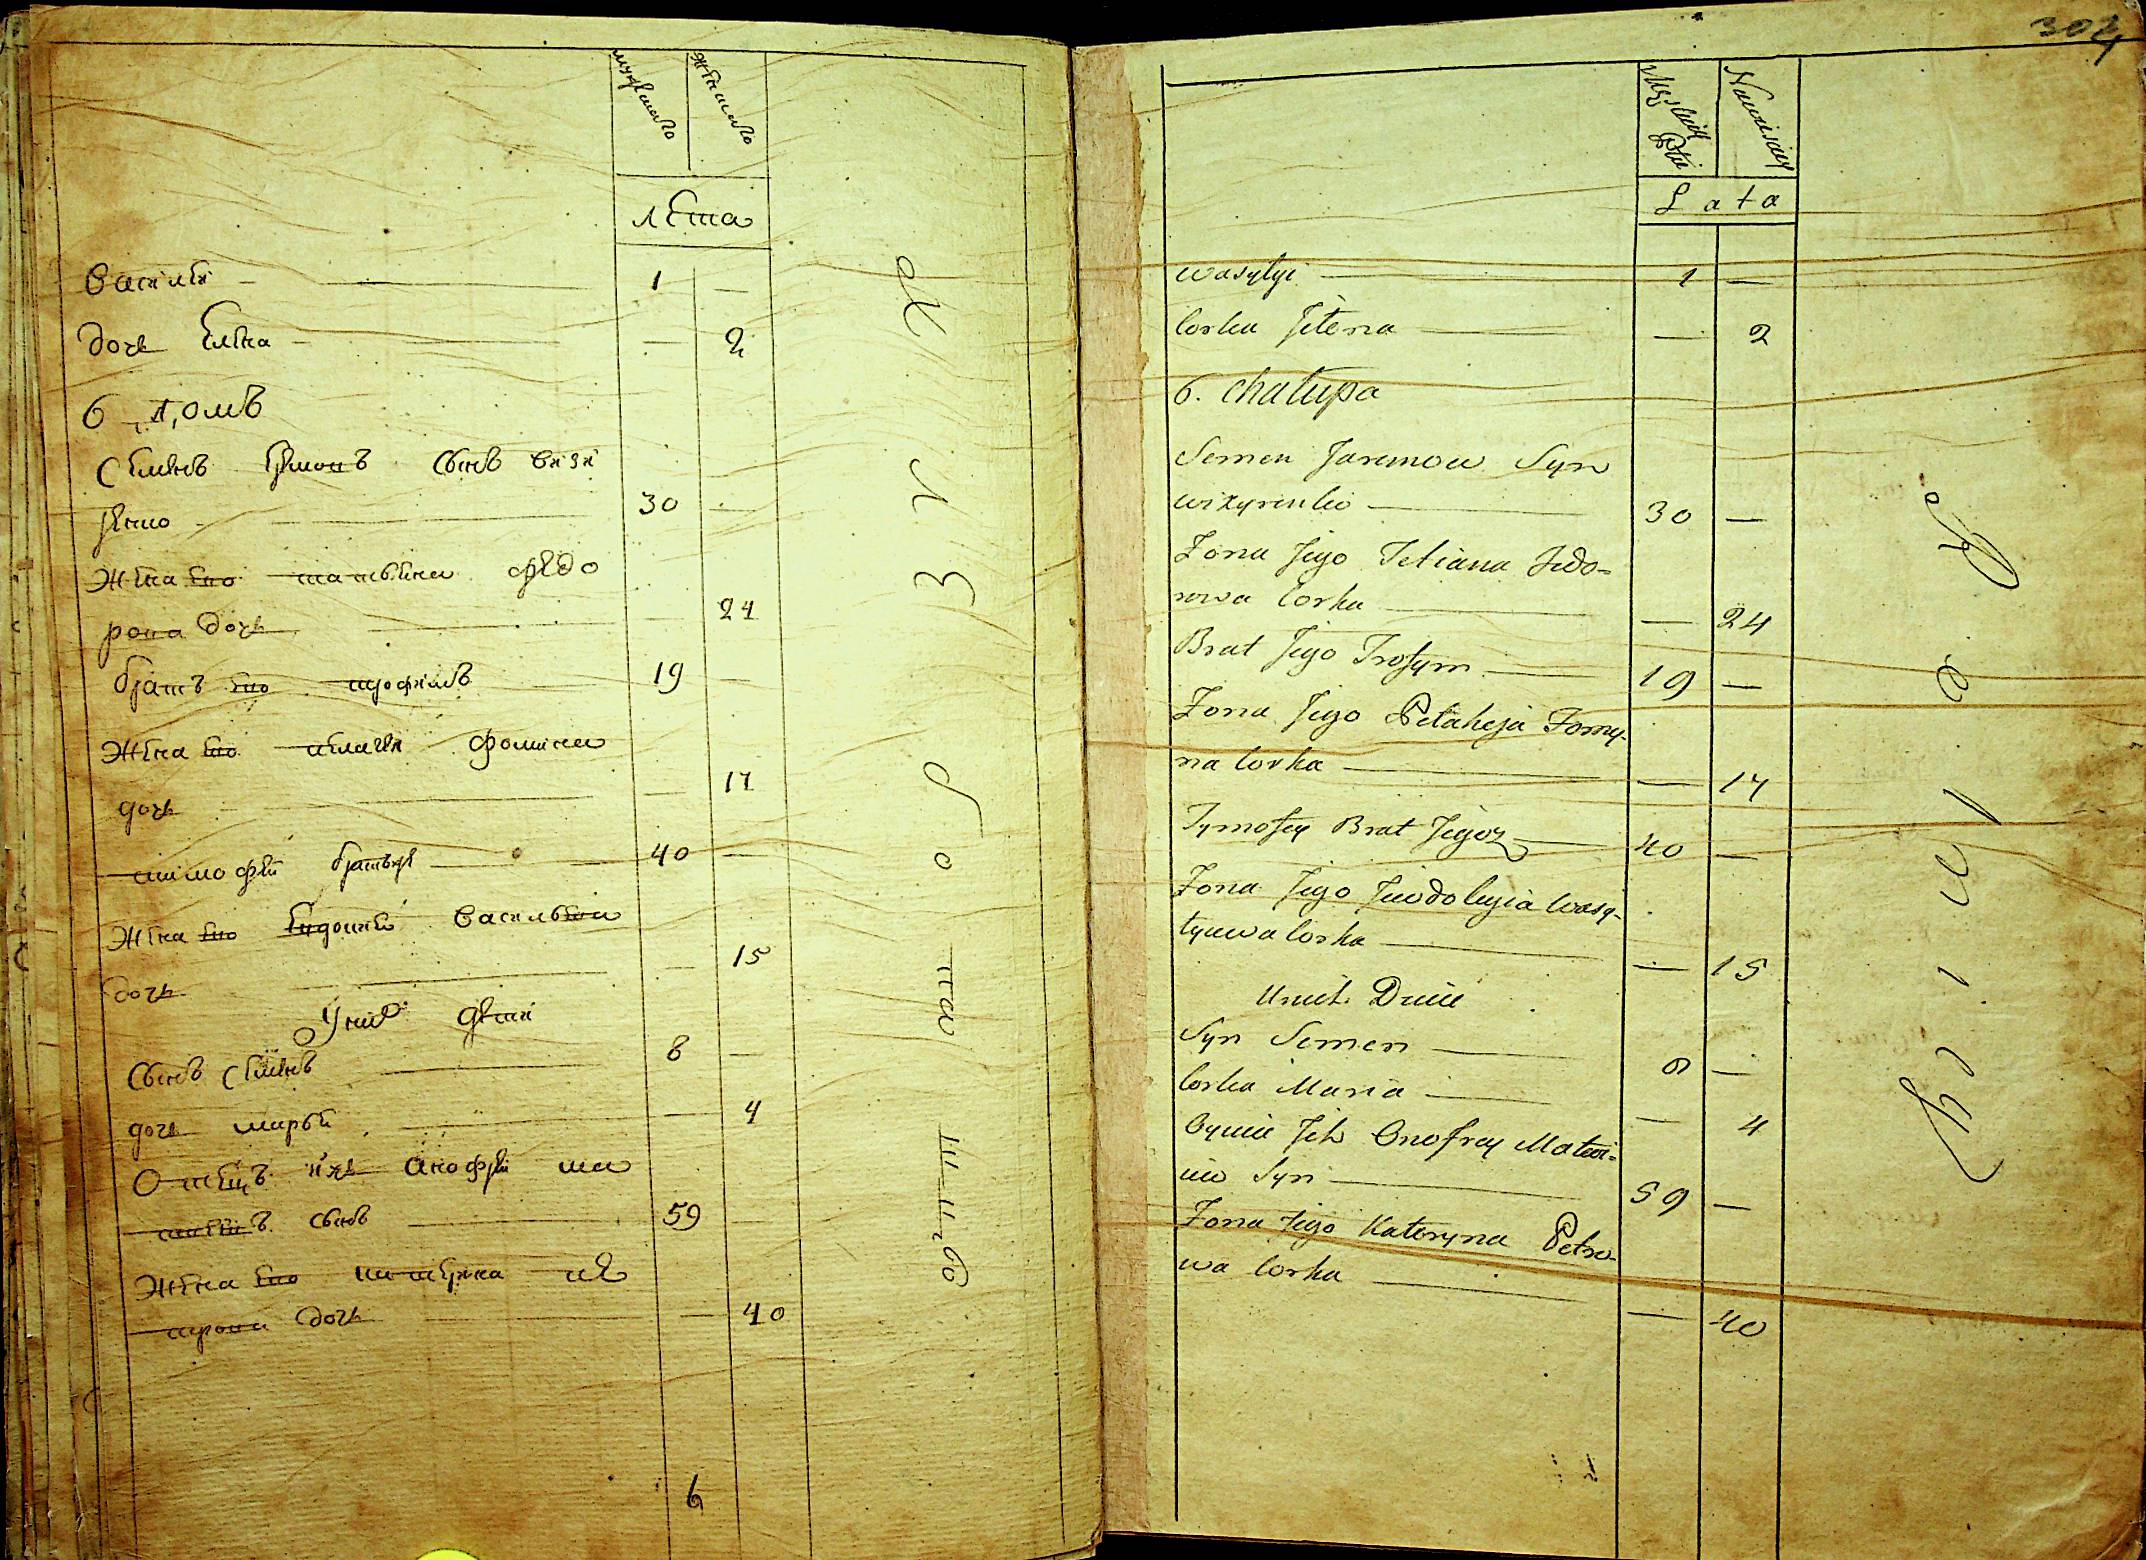 мужеска женска
лѣта
Василій 1 —
дочь Елена — 2
6 Домъ
Семенъ Еремовъ сынъ Визи
ренко 30 —
Жена его татьяна федо
рова дочь — 24
братъ его трофимъ 19 —
Жена его пелагія фомина
дочь — 17
тимофей братъ же 40 —
Жена его Евдокія Васильева
дочь — 15
У нихъ дети
Сынъ Семенъ 8 —
дочь марья — 4
Отецъ ихъ анофрей ма
твеевъ сынъ 59 —
Жена его катерина пе
трова дочь — 40
6
304
Męskiey Płci
Lata
Wasylyi 1 —
Corka Jelena — 2
6. Chałupa
Semen Jaremow Syn
Wizyrenko 30 —
Zona Jego Tetiana Fedo=
rowa Corka — 24
Brat Jego Trofym 19 —
Zona Jego Pelaheja Fomy-
na Corka — 17
Tymofey Brat Jegoz 40 —
Zona Jego Jewdokyia Wasy-
lyewa Corka — 15
Unich Dzieci
Syn Semen 8 —
Corka Maria — 4
Oyciec Jch Onofrey Matwi=
iew Syn 59 —
Zona Jego Kateryna Petro-
wa Corka — 40